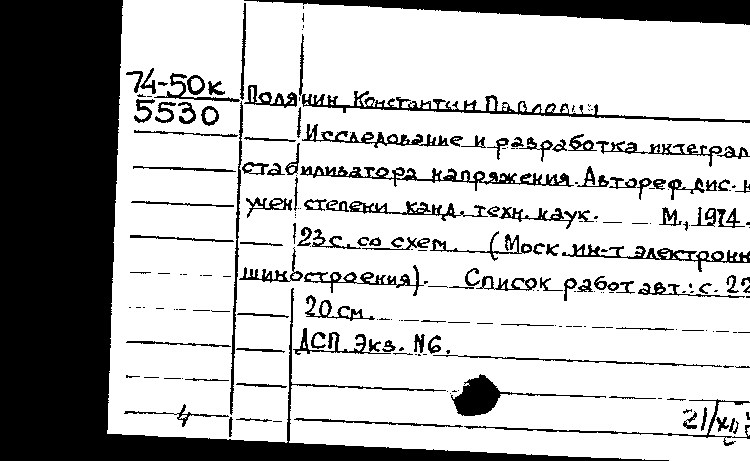 74-50к
5530
Полянин, Константин Павлович
Исследование и разработка интеграл
стабилизатора напряжения. Автореф. дис. н
учен. степени канд. техн. наук. М., 1974.
23 с. со схем. (Моск. ин-т электронн
шиностроения). Список работ авт.: с. 22
20 см.
ДСП. Экз. №6.
4
21/XII